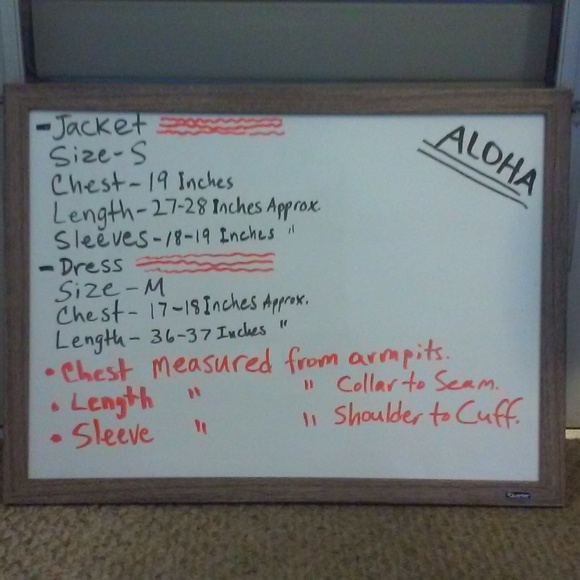 - Jacket
ALOHA
Size - S
Chest - 19 Inches
Length - 27-28 Inches Approx.
Sleeves - 18-19 Inches "
- Dress
Size - M
Chest - 17-18 Inches Approx.
Length - 36-37 Inches "
• Chest measured from armpits.
• Length " " Collar to Seam.
• Sleeve " " Shoulder to Cuff.